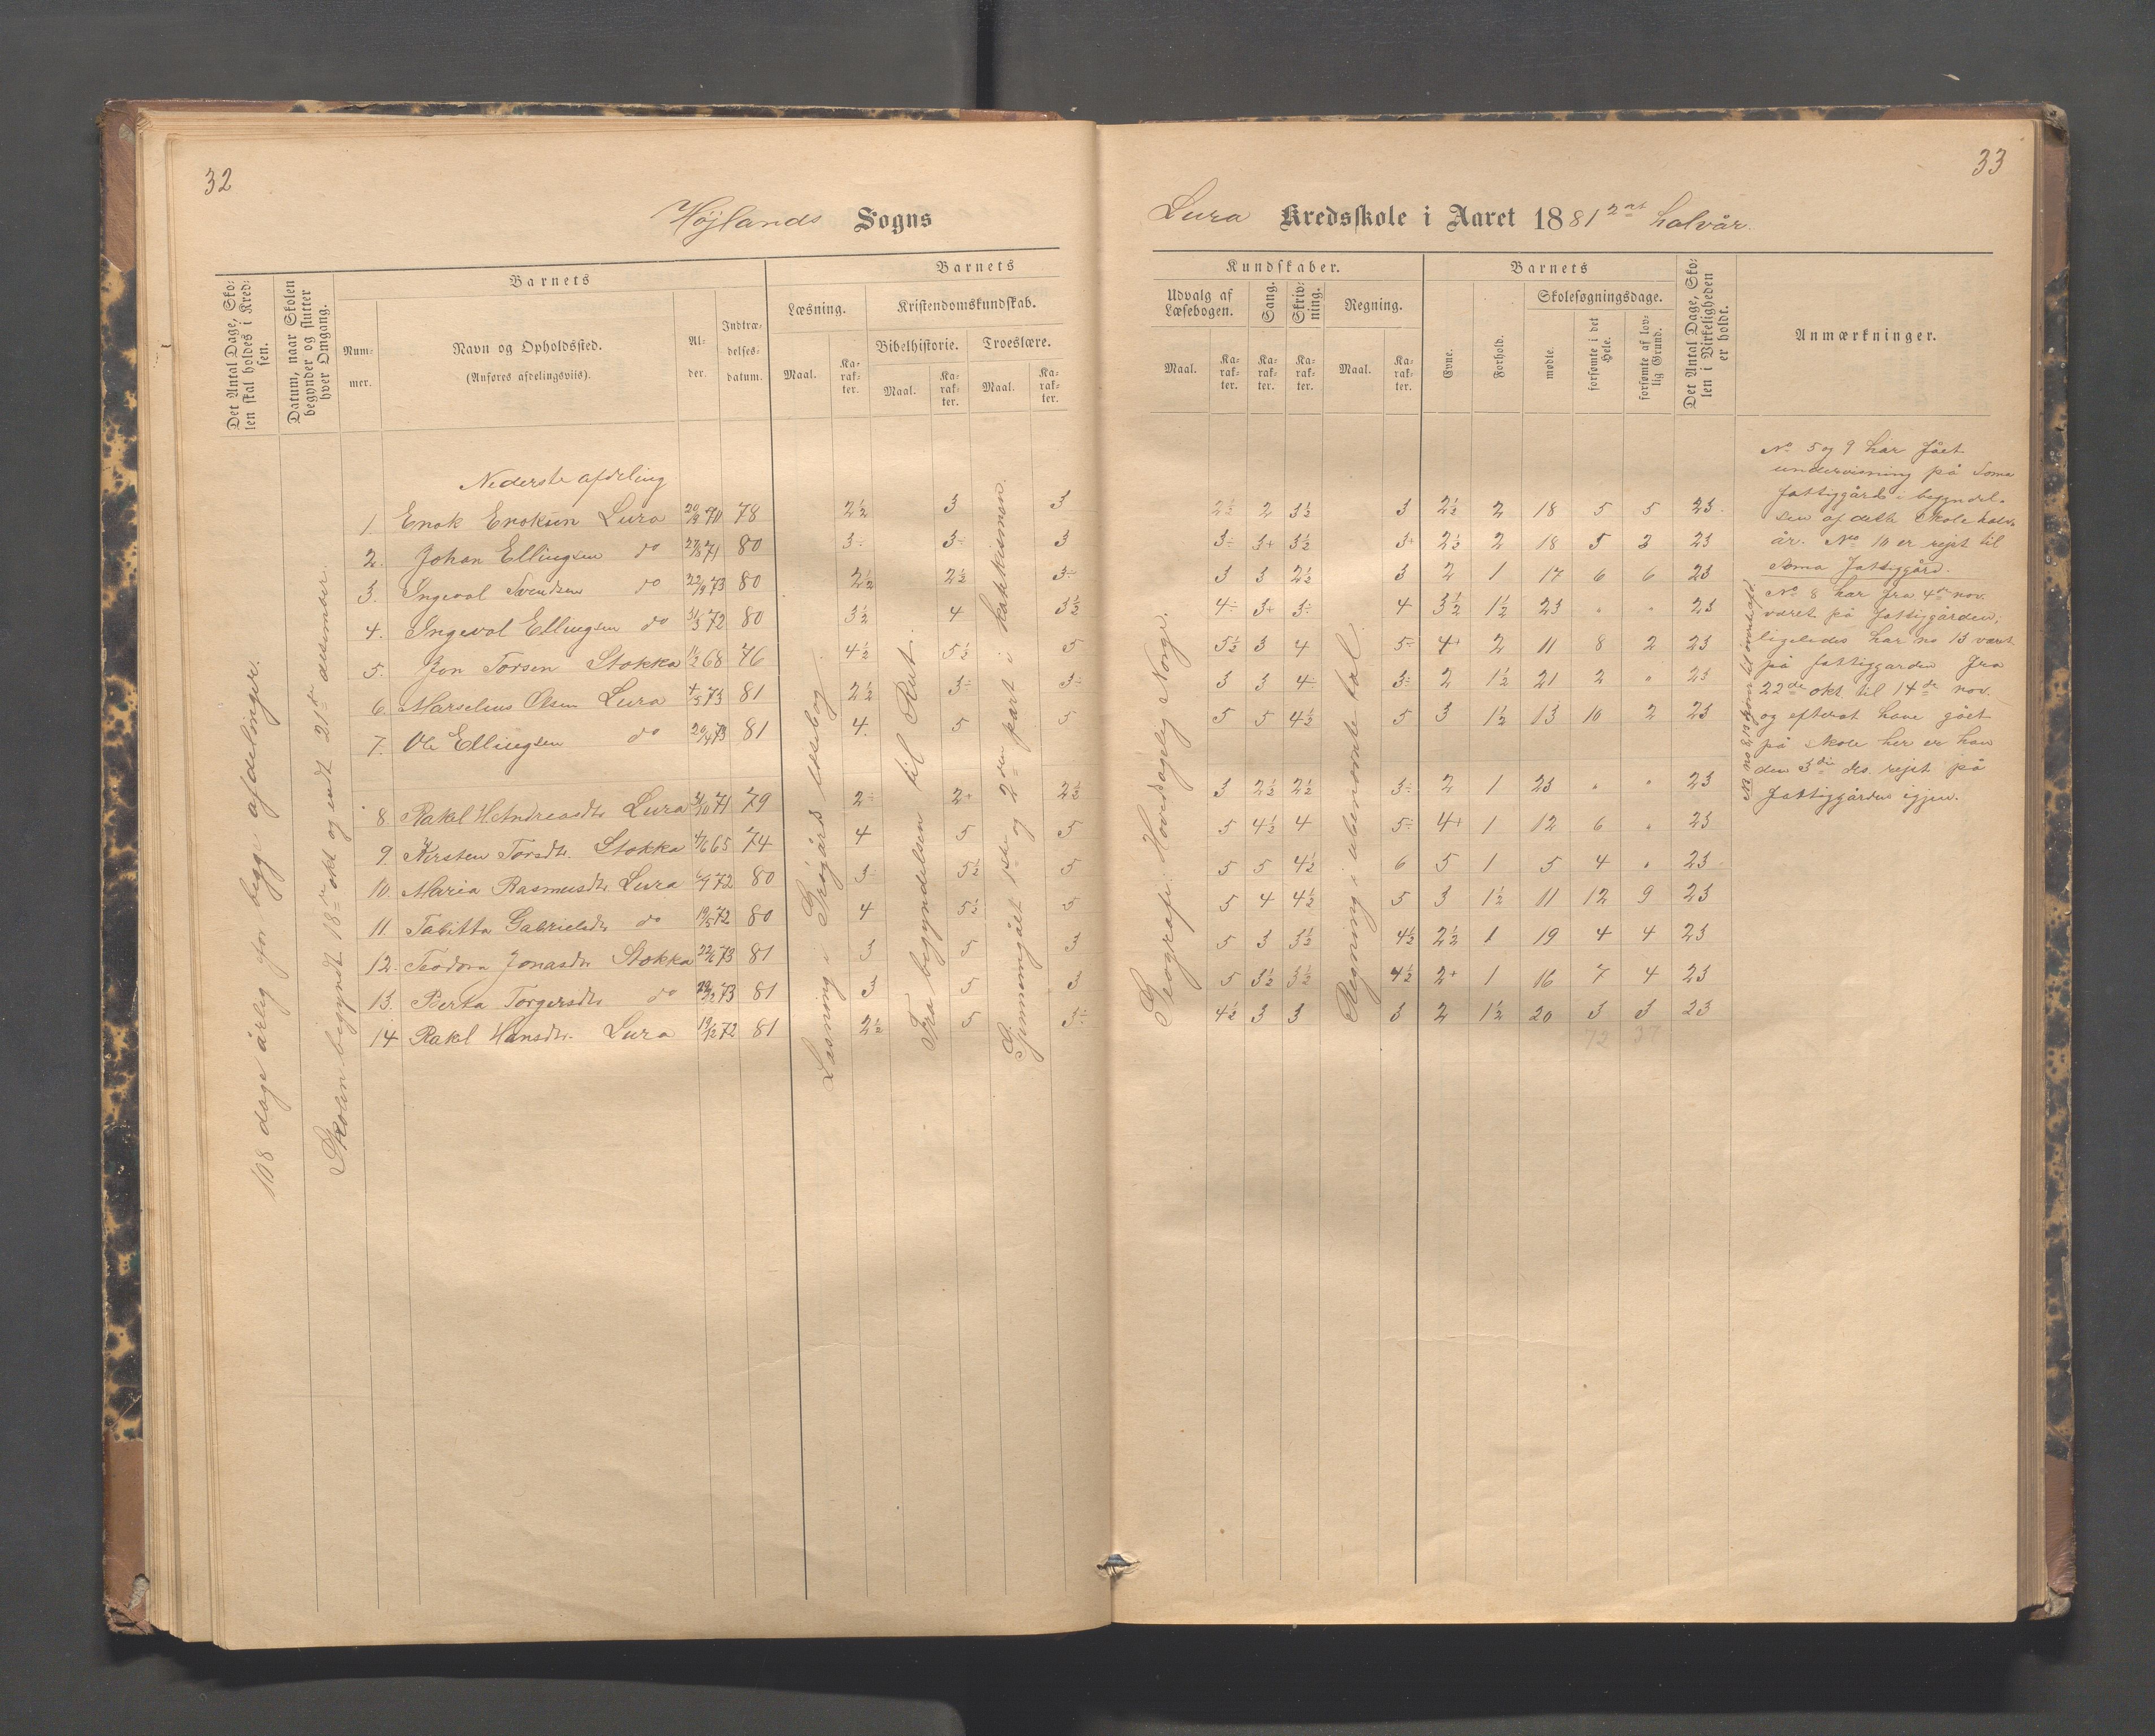 32
Højlands Sogns
Det Antal Dage, Sko-
len skal holdes i Kred-
sen.
Datum, naar Skolen
begynder og slutter
hver Omgang.
Barnets
Num-
mer.
Navn og Opholdssted.
(Anføres afdelingsviis).
Al-
der.
Indtræ-
delses-
datum.
Barnets
Læsning.
Kristendomskundskab.
Maal.
Ka-
rak-
ter.
Bibelhistorie.
Troeslære.
Maal.
Ka-
rak-
ter.
Maal.
Ka-
rak-
ter.
108 dage årlig for begge afdelinger.
Skolen begyndt 18de okt og endt 21de desember.
Læsning i læsebog
Fra begyndelsen til Rut.
Gjennemgået 1ste og 2den part i katekismen.
Nederste afdeling
1. Enok Enoksen Lura 70 78 2½ 3 3
2. Johan Ellingsen do 27/3 71 80 3÷ 3÷ 3
3. Ingeval Svendsen do 22/9 73 80 2½ 2½ 3÷
4. Ingeval Ellingsen do 31/3 72 80 3½ 4 3½
5. Jon Torsen Stokka 68 76 4½ 5½ 5
6. Marselius Olsen Lura 73 81 2½ 3÷ 3÷
7. Ole Ellingsen do 20/4 73 81 4. 5 5
8. Rakel H. Andreasdtr Lura 71 79 2÷ 2+ 2½
9 Kirsten Torsdtr. Stokka 4/6 65 74 4 5 5
10. Maria Rasmusdtr Lura 72 80 3÷ 5½ 5
11. Tabitta Gabrielsdtr do 19/5 72 80 4 5½ 5
12. Teodora Jonasdtr Stokka 73 81 3 5 3
13. Berta Torgersdtr do 73 81 3 5 3
14 Rakel Hansdtr. Lura 19/12 72 81 2½ 5 3÷
33
Lura Kredsskole i Aaret 1881 2det halvår.
Kundskaber.
Udvalg af
Læsebogen.
Sang.
Skriv-
ning.
Regning.
Maal.
Ka-
rak-
ter.
Ka-
rak-
ter.
Ka-
rak-
ter.
Maal.
Ka-
rak-
ter.
Barnets
Evne.
Forhold.
Skolesøgningsdage.
mødte.
forsømte i det
Hele.
forsømte af lov-
lig Grund.
Det Antal Dage, Sko-
len i Virkeligheden
er holdt.
Anmærkninger.
Geografi: Hovedsagelig Norge.
Regning i ubenævnte tal
2½ 2 3½ 3 2½ 2 18 5 5 23
3÷ 3+ 3½ 3+ 2½ 2 18 5 3 23
3 3 2½ 3 2 1 17 6 6 23
4÷ 3+ 3÷ 4 3½ 1½ 23 " " 23
5½ 3 4 5÷ 4+ 2 11 8 2 23
3 3 4÷ 3÷ 2 1½ 21 2 " 23
5 5 4½ 5 3 1½ 13 10 2 23
3 2½ 2½ 3÷ 2 1 23 " " 23
5 4½ 4 5÷ 4+ 1 12 6 " 23
5 5 4½ 6 5 1 5 4 " 23
5 4 4½ 5 3 1½ 11 12 9 23
5 3 3½ 4½ 2½ 1 19 4 4 23
5 3½ 3½ 4½ 2+ 1 16 7 4 23
4½ 3 3 3 2 1½ 20 3 3 23
72 37
No 5 og 9 har fået
undervisning på Soma
fattiggård i begyndel-
sen af dette skolehalv-
år. No 10 er rejst til
Soma fattiggård.
No 8 har fra 4de nov.
været på fattiggården;
ligeledes har no 13 været
på fattiggården fra
22de okt. til 14de nov.
og efterat have gået
på skole her er hun
den 3die des. rejst på
fattiggården igjen.